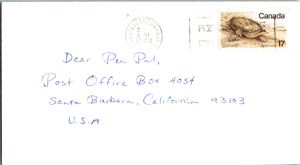 Canada
17
Dear Pen Pal,
Post Office Box 4054
Santa Barbara, California 93103
U.S.A